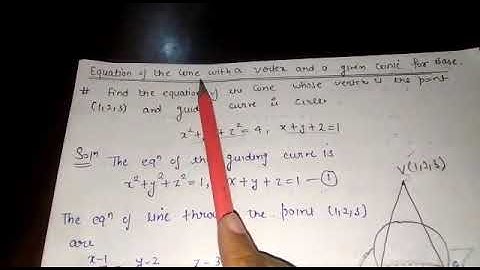 Equation of the cone with a vertex and a given conic for base.
# Find the equation of the cone whose vertex is the point
(1,2,3) and guiding curve is circle
x²+y²+z²=4, x+y+z=1
Solⁿ The eqⁿ of the guiding curve is
x²+y²+z²=1, x+y+z=1 —①
V(1,2,3)
The eqⁿ of line through the point (1,2,3)
are
x-1 y-2 z-3